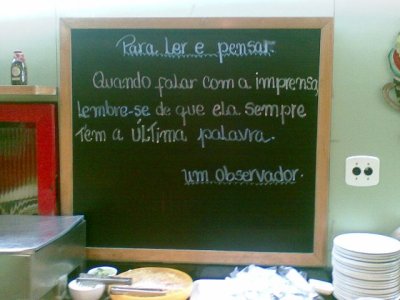 Para Ler e pensar.
Quando falar com a imprensa,
Lembre-se de que ela sempre
Tem a ÚLTIMA palavra.
um observador.